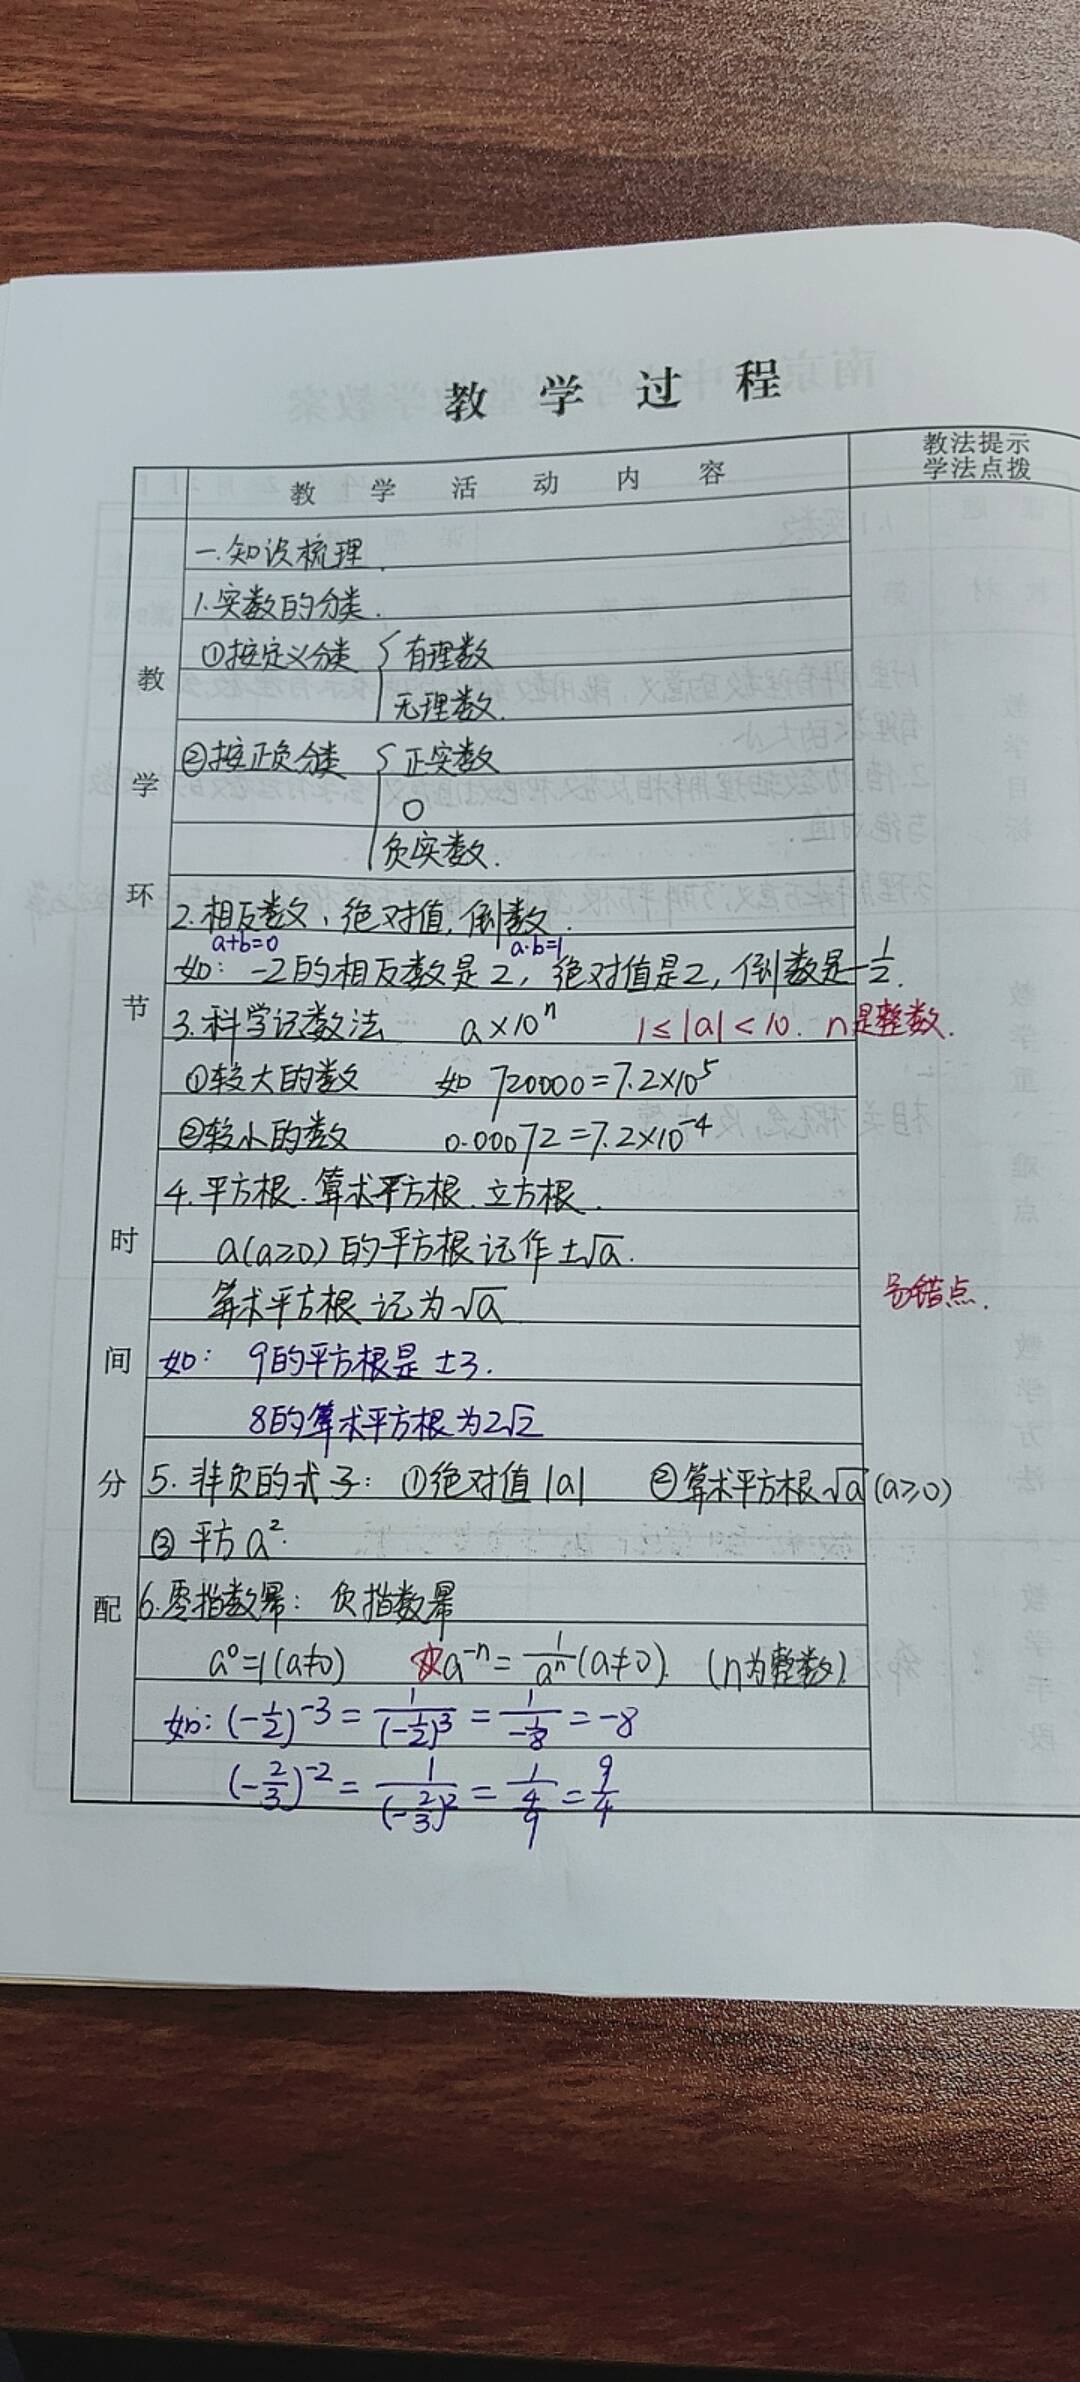 教学过程
教学活动内容
教法提示
学法点拨
教学环节时间分配
一.知识梳理.
1.实数的分类.
①按定义分类 { 有理数
无理数.
②按正负分类 { 正实数
0
负实数.
2.相反数、绝对值,倒数.
a+b=0 a·b=1
如: -2的相反数是2, 绝对值是2, 倒数是-1/2.
3.科学记数法 a×10ⁿ 1≤|a|<10. n是整数.
①较大的数 如 720000=7.2×10⁵
②较小的数 0.00072=7.2×10⁻⁴
4.平方根.算术平方根.立方根.
a(a≥0)的平方根记作±√a.
算术平方根记为√a
易错点.
如: 9的平方根是±3.
8的算术平方根为2√2
5.非负的式子: ①绝对值|a| ②算术平方根√a(a≥0)
③平方a².
6.零指数幂: 负指数幂
a⁰=1(a≠0) ☆a⁻ⁿ=1/aⁿ(a≠0). (n为整数).
如: (-1/2)⁻³=1/(-1/2)³=1/(-1/8)=-8
(-2/3)⁻²=1/(-2/3)²=1/(4/9)=9/4